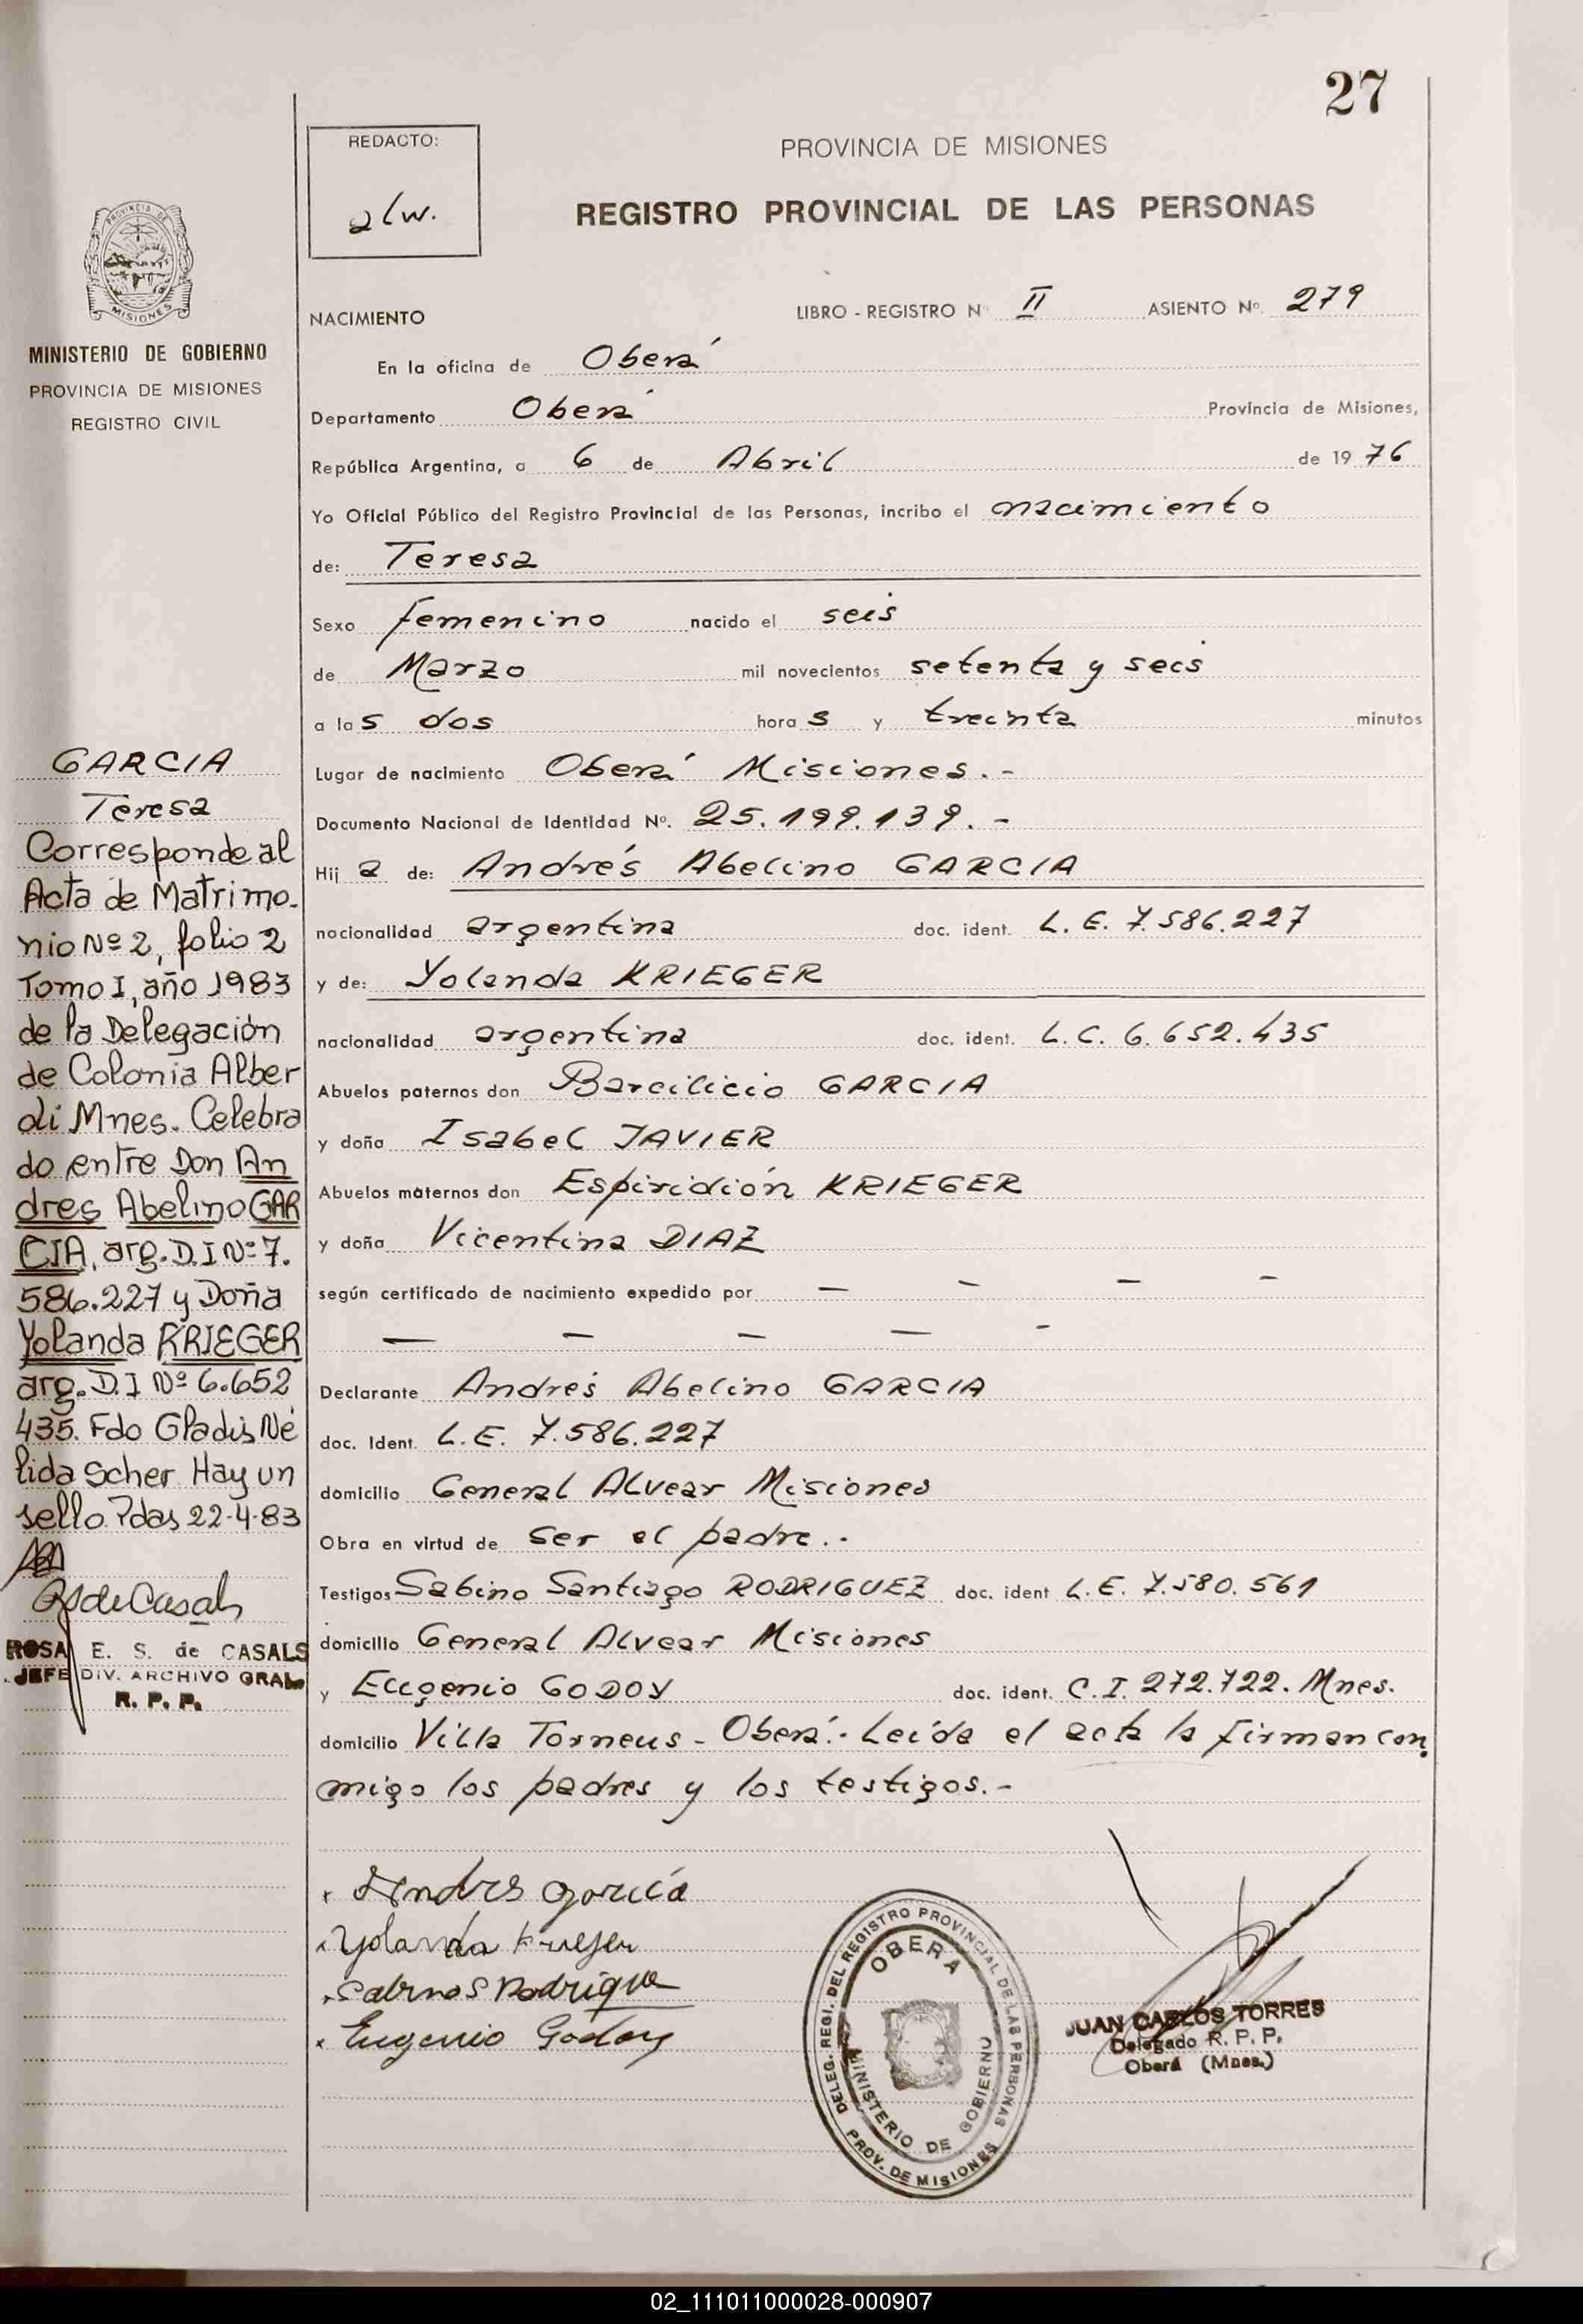 27
REDACTO:
alw.
PROVINCIA DE MISIONES
REGISTRO PROVINCIAL DE LAS PERSONAS
NACIMIENTO
LIBRO - REGISTRO Nº II ASIENTO Nº. 279
En la oficina de Oberá
Departamento Oberá Provincia de Misiones,
República Argentina, a 6 de Abril de 19 76
Yo Oficial Público del Registro Provincial de las Personas, incribo el nacimiento
de: Teresa
Sexo femenino nacido el seis
de Marzo mil novecientos setenta y seis
a las dos horas y treinta minutos
Lugar de nacimiento Oberá Misiones.-
Documento Nacional de Identidad Nº. 25.199.139.-
Hij a de: Andrés Abelino GARCIA
nacionalidad argentina doc. ident. L.E. 7.586.227
y de: Yolanda KRIEGER
nacionalidad argentina doc. ident. L.C. 6.652.435
Abuelos paternos don Barcilicio GARCIA
y doña Isabel JAVIER
Abuelos maternos don Espiridión KRIEGER
y doña Vicentina DIAZ
según certificado de nacimiento expedido por — — — —
— — — — -
Declarante Andrés Abelino GARCIA
doc. Ident. L.E. 7.586.227
domicilio General Alvear Misiones
Obra en virtud de ser el padre.-
Testigos Sabino Santiago RODRIGUEZ doc. ident L.E. 7.580.561
domicilio General Alvear Misiones
y Eugenio GODOY doc. ident. C.I. 272.722. Mnes.
domicilio Villa Torneus - Oberá.- Leída el acta la firman con
migo los padres y los testigos.-
Andres García
Yolanda Krieger
Sabino S Rodrigue
Eugenio Godoy
DELEG. REGI. DEL REGISTRO PROVINCIAL DE LAS PERSONAS
OBERA
MINISTERIO DE GOBIERNO
PROV. DE MISIONES
JUAN CARLOS TORRES
Delegado R. P. P.
Oberá (Mnes.)
PROVINCIA DE
MISIONES
MINISTERIO DE GOBIERNO
PROVINCIA DE MISIONES
REGISTRO CIVIL
GARCIA
Teresa
Corresponde al
Acta de Matrimo-
nio Nº 2, folio 2
Tomo I, año 1983
de la Delegación
de Colonia Alber
di Mnes. Celebra
do entre Don An
dres Abelino GAR
CIA, arg. D.I Nº 7.
586.227 y Doña
Yolanda KRIEGER
arg. D.I Nº 6.652
435. Fdo Gladis Né
lida Scher. Hay un
sello. Pdas 22-4-83
RS de Casals
ROSA E. S. de CASALS
JEFE DIV. ARCHIVO GRAL.
R. P. P.
02_111011000028-000907